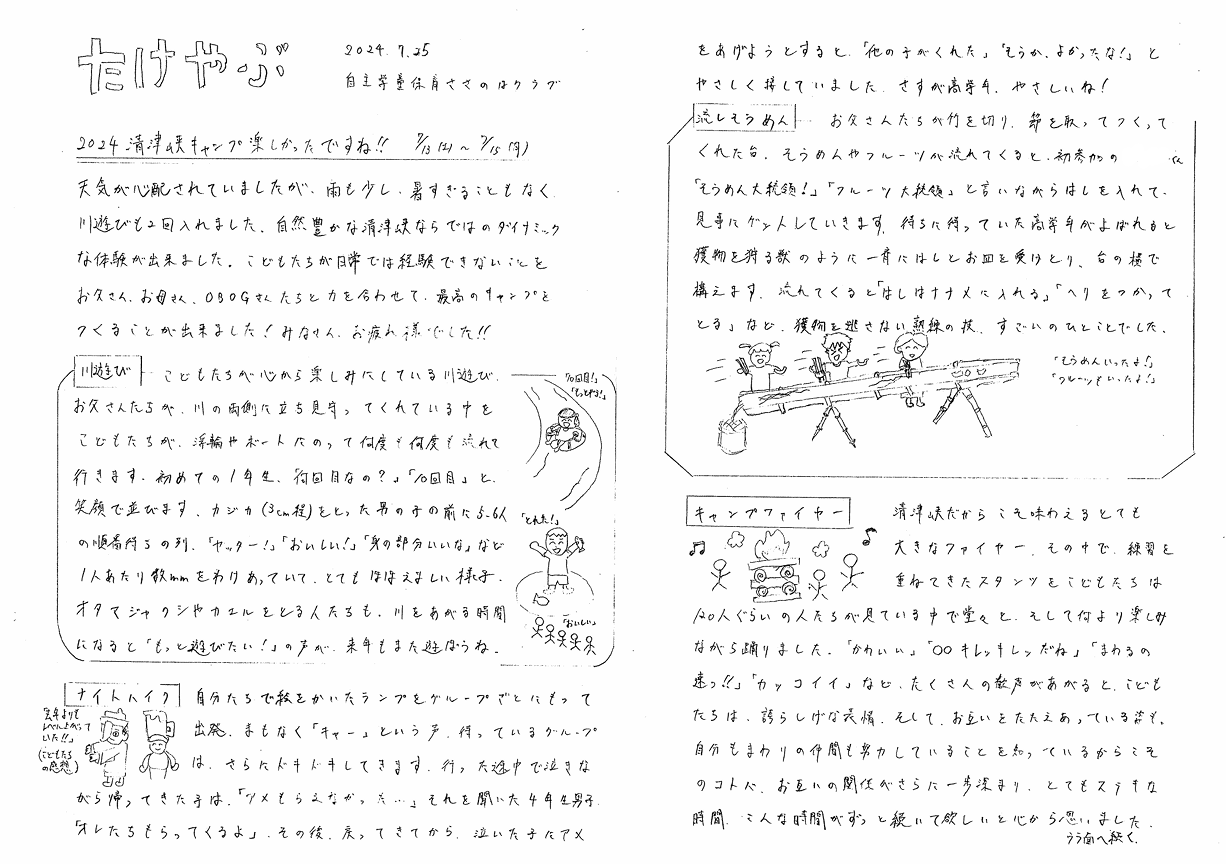 たけやぶ
2024.7.25
自主学童保育ささのはクラブ
2024 清津峡キャンプ楽しかったですね!! 7/13(土)〜7/15(月)
天気が心配されていましたが、雨も少し、暑すぎることもなく、
川遊びも2回入れました。自然豊かな清津峡ならではのダイナミック
な体験が出来ました。こどもたちが日常では経験できないことを
お父さん、お母さん、OBOGさんたちと力を合わせて、最高のキャンプを
つくることが出来ました！みなさん、お疲れ様でした!!
川遊び
こどもたちが心から楽しみにしている川遊び。
お父さんたちが、川の両側に立ち見守ってくれている中を
こどもたちが、浮輪やボートにのって何度も何度も流れて
行きます。初めての1年生、「何回目なの？」「10回目」と、
笑顔で並びます。カジカ(3cm程)をとった男の子の前に5-6人
の順番待ちの列。「ヤッター！」「おいしい！」「身の部分いいな」など
1人あたり数mmをわけあっていて、とてもほほえましい様子。
オタマジャクシやカエルをとる人たちも、川をあがる時間
になると「もっと遊びたい！」の声が、来年もまた遊ぼうね。
「10回目！」
「もっとやる！」
「とれた！」
「おいしい」
ナイトハイク
自分たちで絵をかいたランプをグループごとにもって
出発。まもなく「キャー」という声。待っているグループ
は、さらにドキドキしてきます。行った途中で泣きな
がら帰ってきた子は、「アメもらえなかった…」それを聞いた4年生男子、
「オレたちもらってくるよ」。その後、戻ってきてから、泣いた子にアメ
「去年よりも
レベル上がって
いた!!」
(こどもたち
の感想)
をあげようとすると、「他の子がくれた」「そうか、よかったな！」と
やさしく接していました。さすが高学年、やさしいね！
流しそうめん
お父さんたちが竹を切り、節を取ってつくって
くれた台。そうめんやフルーツが流れてくると、初参加の
「そうめん大統領！」「フルーツ大統領」と言いながらはしを入れて、
見事にゲットしていきます。待ちに待っていた高学年がよばれると
獲物を狩る獣のように一斉にはしとお皿を受けとり、台の横で
構えます。流れてくると「はしはナナメに入れる」「ヘリをつかって
とる」など、獲物を逃さない熟練の技、すごいのひとことでした。
「そうめんいったよ！」
「フルーツもいったよ！」
キャンプファイヤー
清津峡だからこそ味わえるとても
大きなファイヤー。その中で、練習を
重ねてきたスタンツをこどもたちは
120人ぐらいの人たちが見ている中で堂々と、そして何より楽しみ
ながら踊りました。「かわいい」「○○キレッキレッだね」「まわるの
速っ!!」「カッコイイ」など、たくさんの歓声があがると、こども
たちは、誇らしげな表情。そして、お互いをたたえあっている姿も。
自分もまわりの仲間も努力していることを知っているからこそ
のコトバ、お互いの関係がさらに一歩深まり、とてもステキな
時間。こんな時間がずっと続いて欲しいと心から思いました。
うら面へ続く。